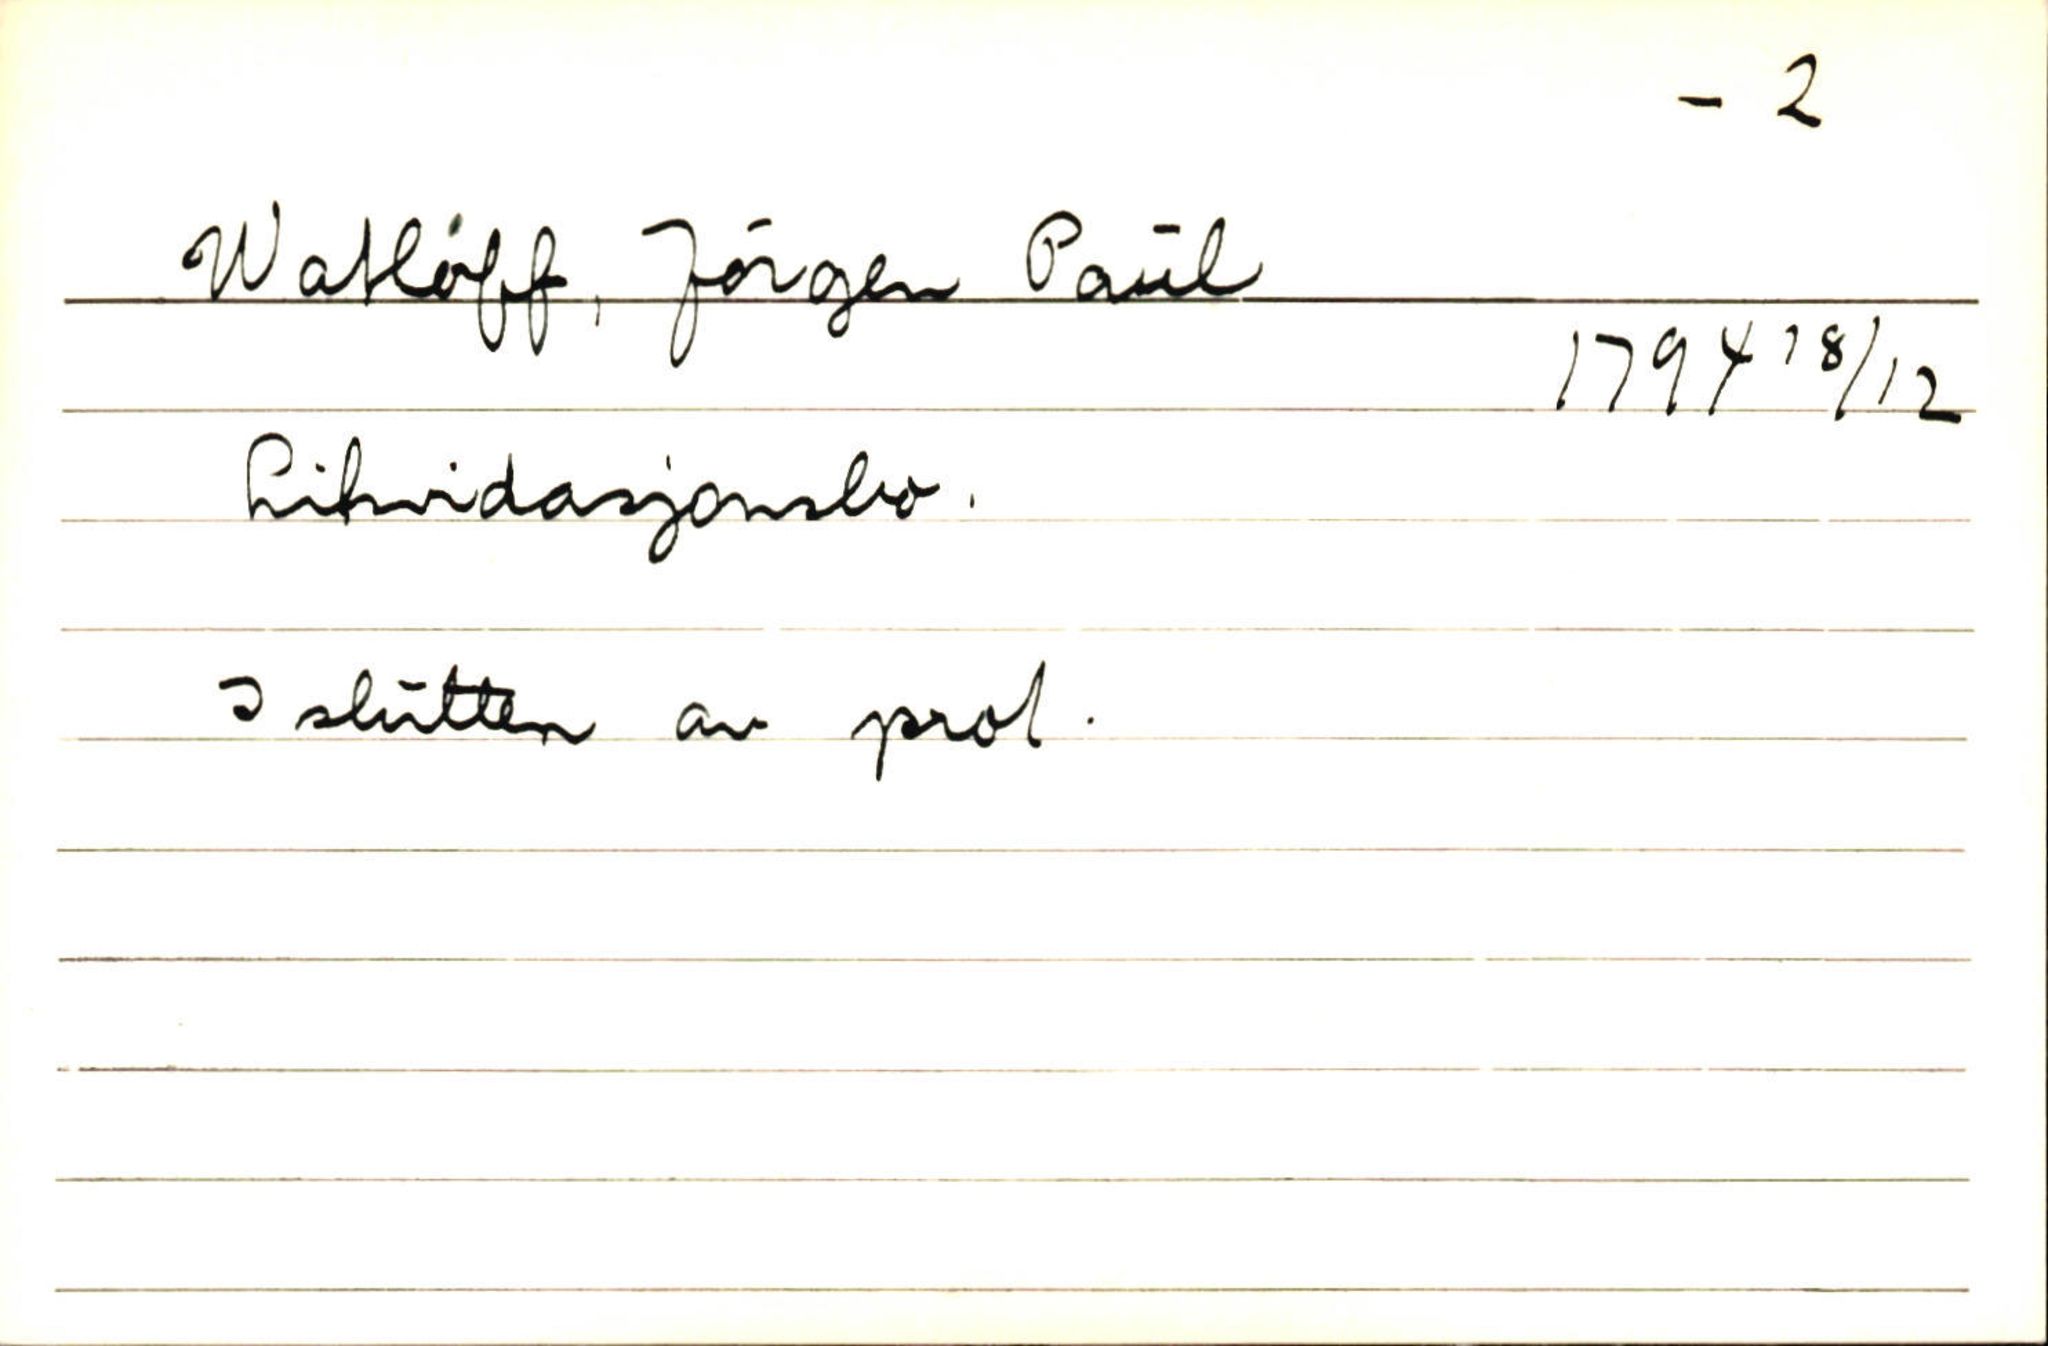 - 2
Watløff, Jørgen Paul
1794 18/12
Likvidasjonsbo.
I slutten av prot.